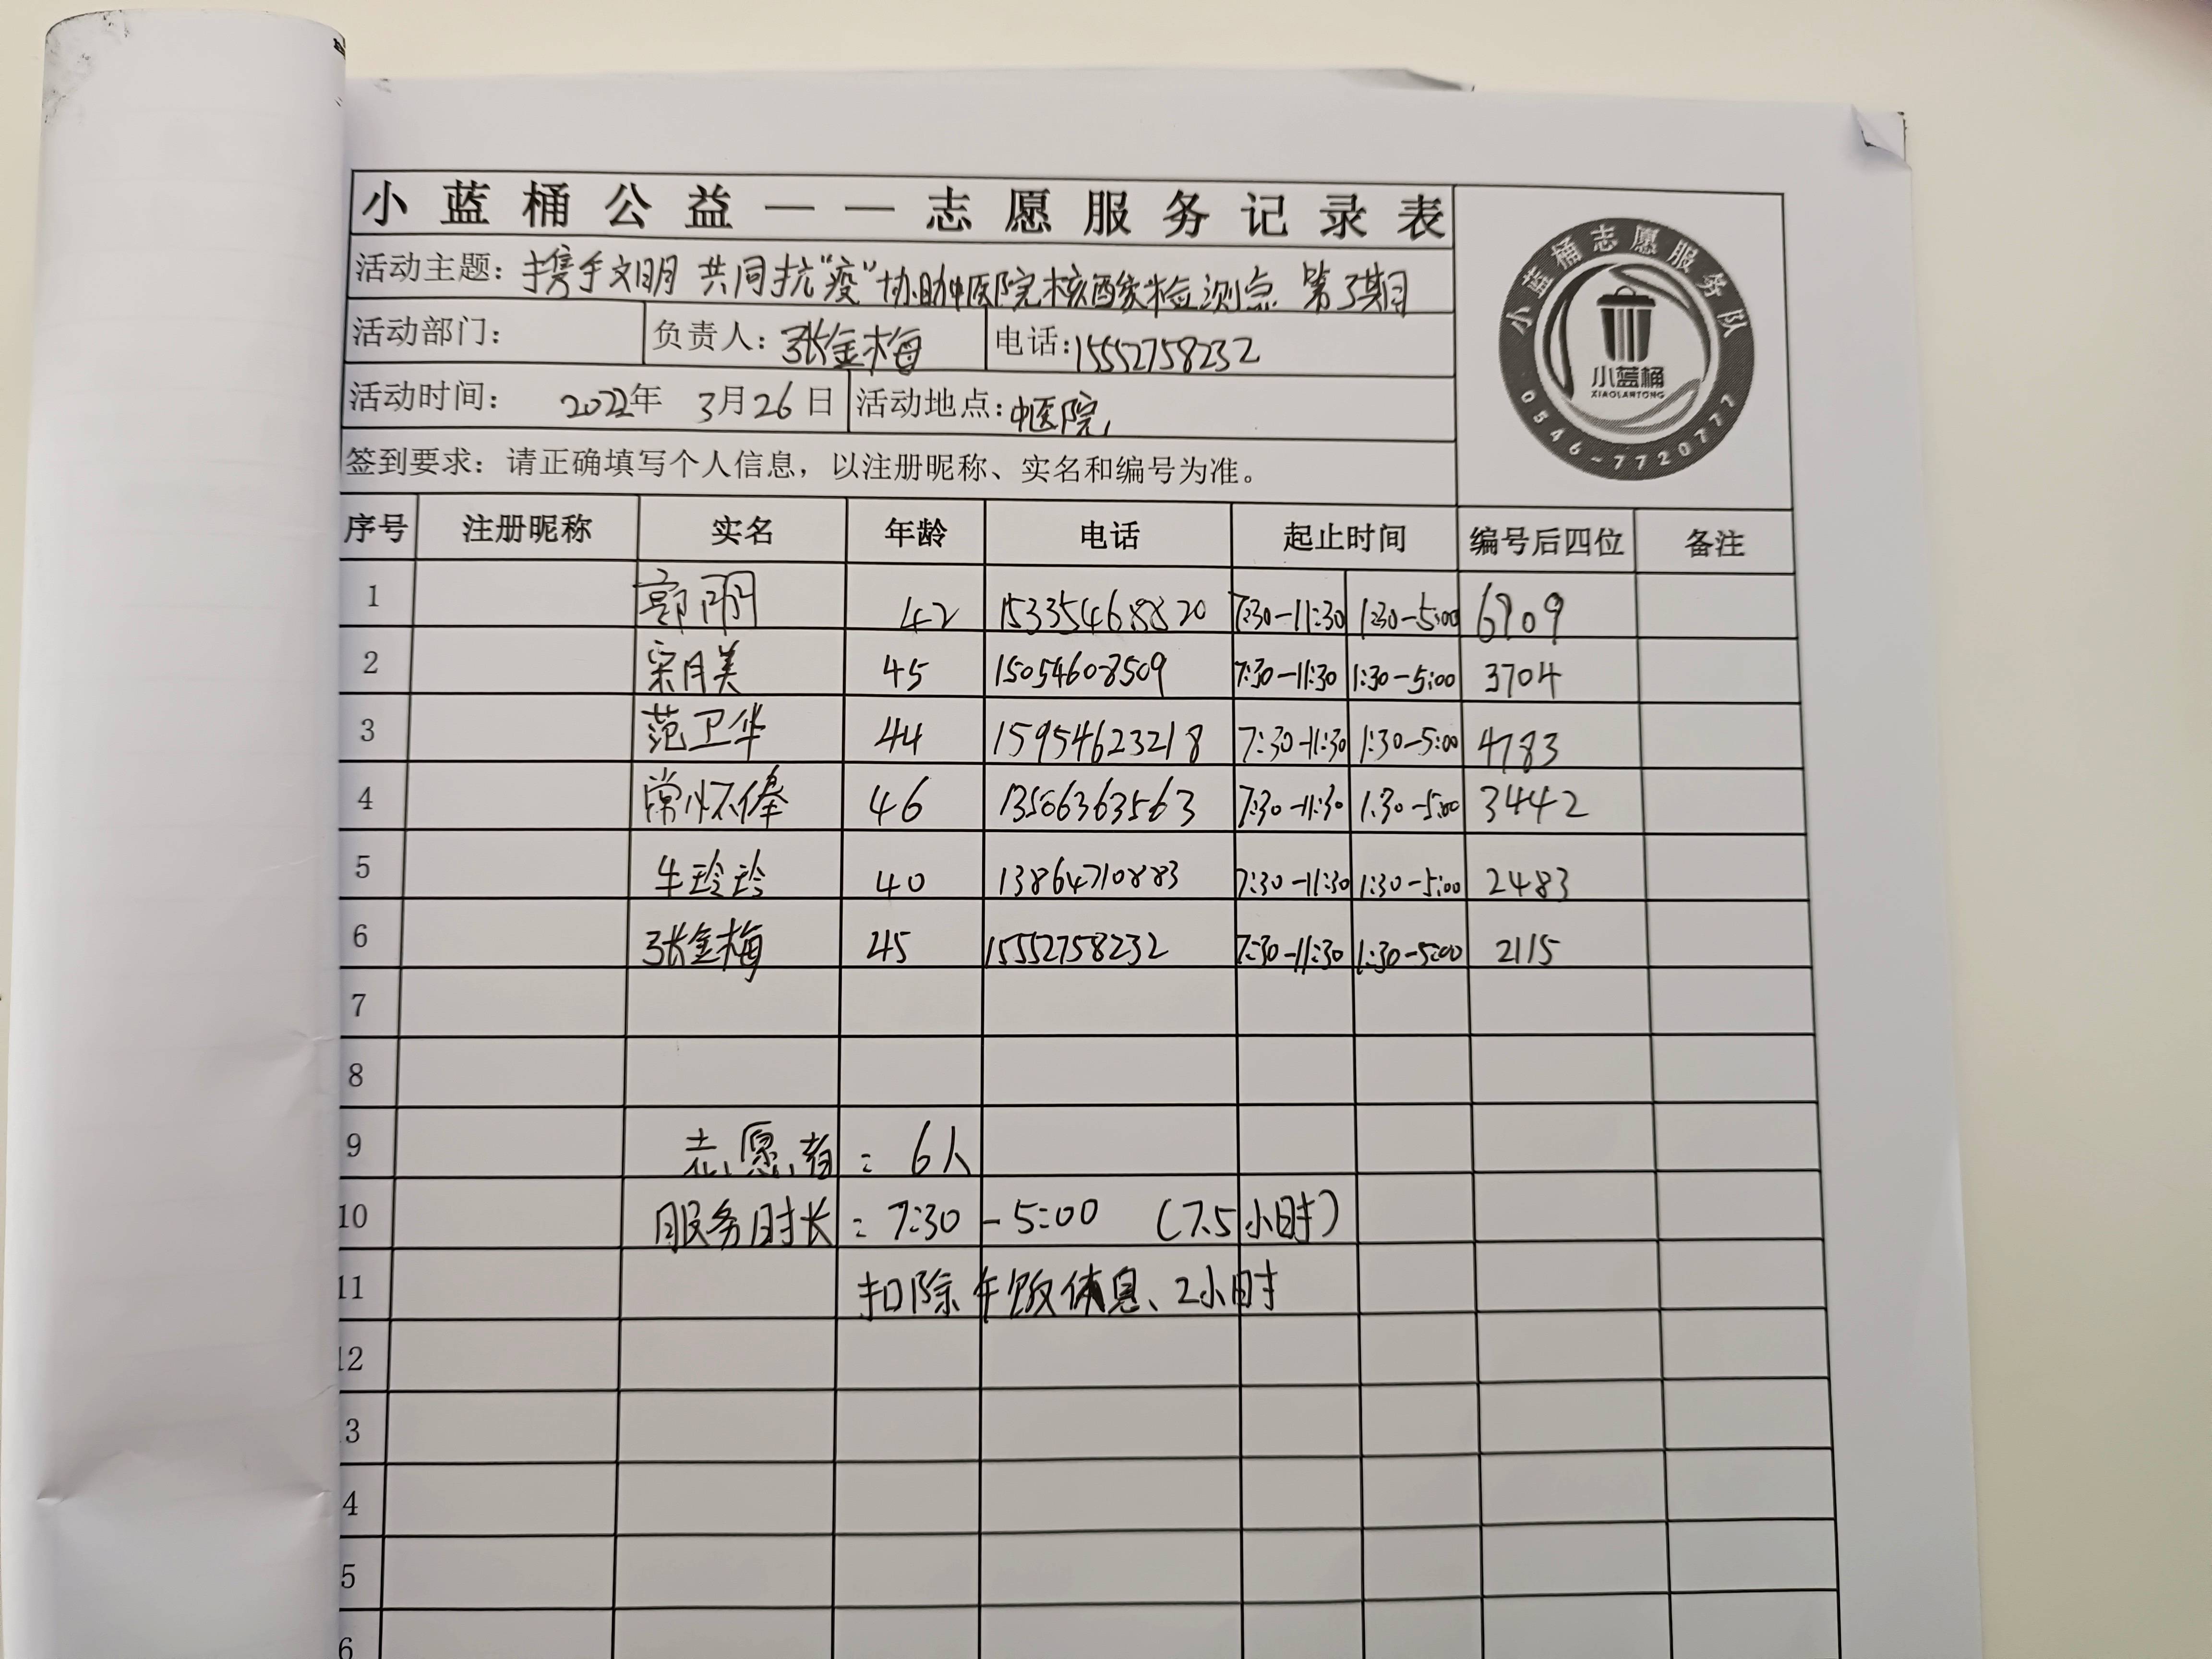 小蓝桶公益——志愿服务记录表
活动主题：携手文明 共同抗“疫”协助中医院核酸检测点 第3期
活动部门： 负责人：张金梅 电话：15552758232
活动时间： 2022年 3月26日 活动地点：中医院
签到要求：请正确填写个人信息，以注册昵称、实名和编号为准。
小蓝桶志愿服务队
小蓝桶
XIAOLANTONG
0546-7720777
序号 注册昵称 实名 年龄 电话 起止时间 编号后四位 备注
1 郭丽 42 15335468820 7:30-11:30 1:30-5:00 6909
2 宋月美 45 15054608509 7:30-11:30 1:30-5:00 3704
3 范卫华 44 15954623218 7:30-11:30 1:30-5:00 4783
4 常怀俸 46 13506363563 7:30-11:30 1:30-5:00 3442
5 牛玲玲 40 13864710883 7:30-11:30 1:30-5:00 2483
6 张金梅 45 15552758232 7:30-11:30 1:30-5:00 2115
7
8
9 志愿者：6人
10 服务时长：7:30-5:00 （7.5小时）
11 扣除午饭休息、2小时
12
3
4
5
6